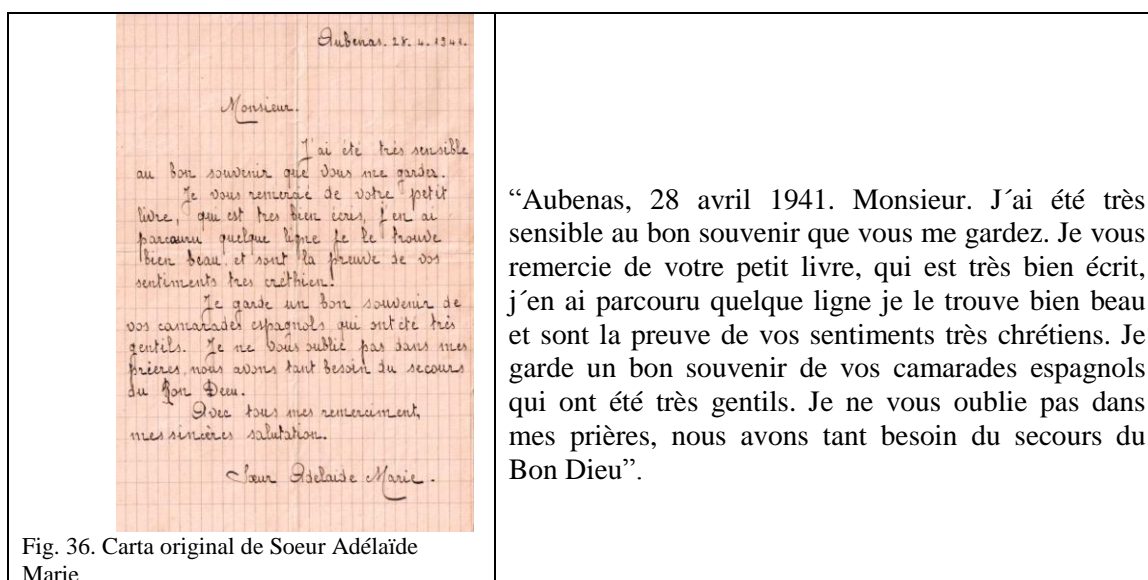 Aubenas. 28. 4. 1941.
Monsieur.
J'ai été très sensible
au bon souvenir que vous me garder.
Je vous remercie de votre petit
livre, qui est tres bien ecris, j'en ai
parcouru quelque ligne je le trouve
bien beau, et sont la preuve de vos
sentiments tres créthien.
Je garde un bon souvenir de
vos camarades espagnols qui ont été très
gentils. Je ne vous oublie pas dans mes
prieres, nous avons tant besoin du secours
du Bon Dieu.
Avec tous mes remerciment,
mes sincères salutation.
Sœur Adelaide Marie.
Fig. 36. Carta original de Soeur Adélaïde
Marie
“Aubenas, 28 avril 1941. Monsieur. J´ai été très
sensible au bon souvenir que vous me gardez. Je vous
remercie de votre petit livre, qui est très bien écrit,
j´en ai parcouru quelque ligne je le trouve bien beau
et sont la preuve de vos sentiments très chrétiens. Je
garde un bon souvenir de vos camarades espagnols
qui ont été très gentils. Je ne vous oublie pas dans
mes prières, nous avons tant besoin du secours du
Bon Dieu”.